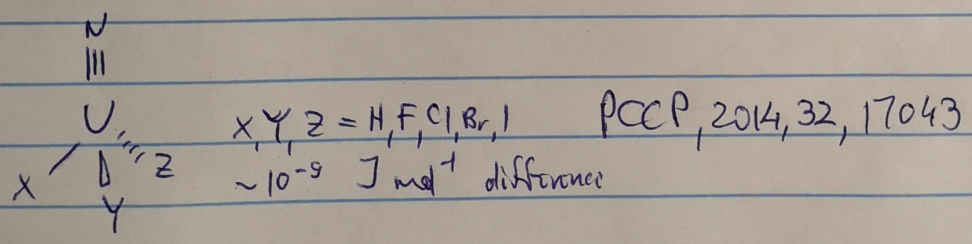 N
|||
U
X, Y, Z = H, F, Cl, Br, I PCCP, 2014, 32, 17043
X Y Z
~10⁻⁹ J mol⁻¹ difference